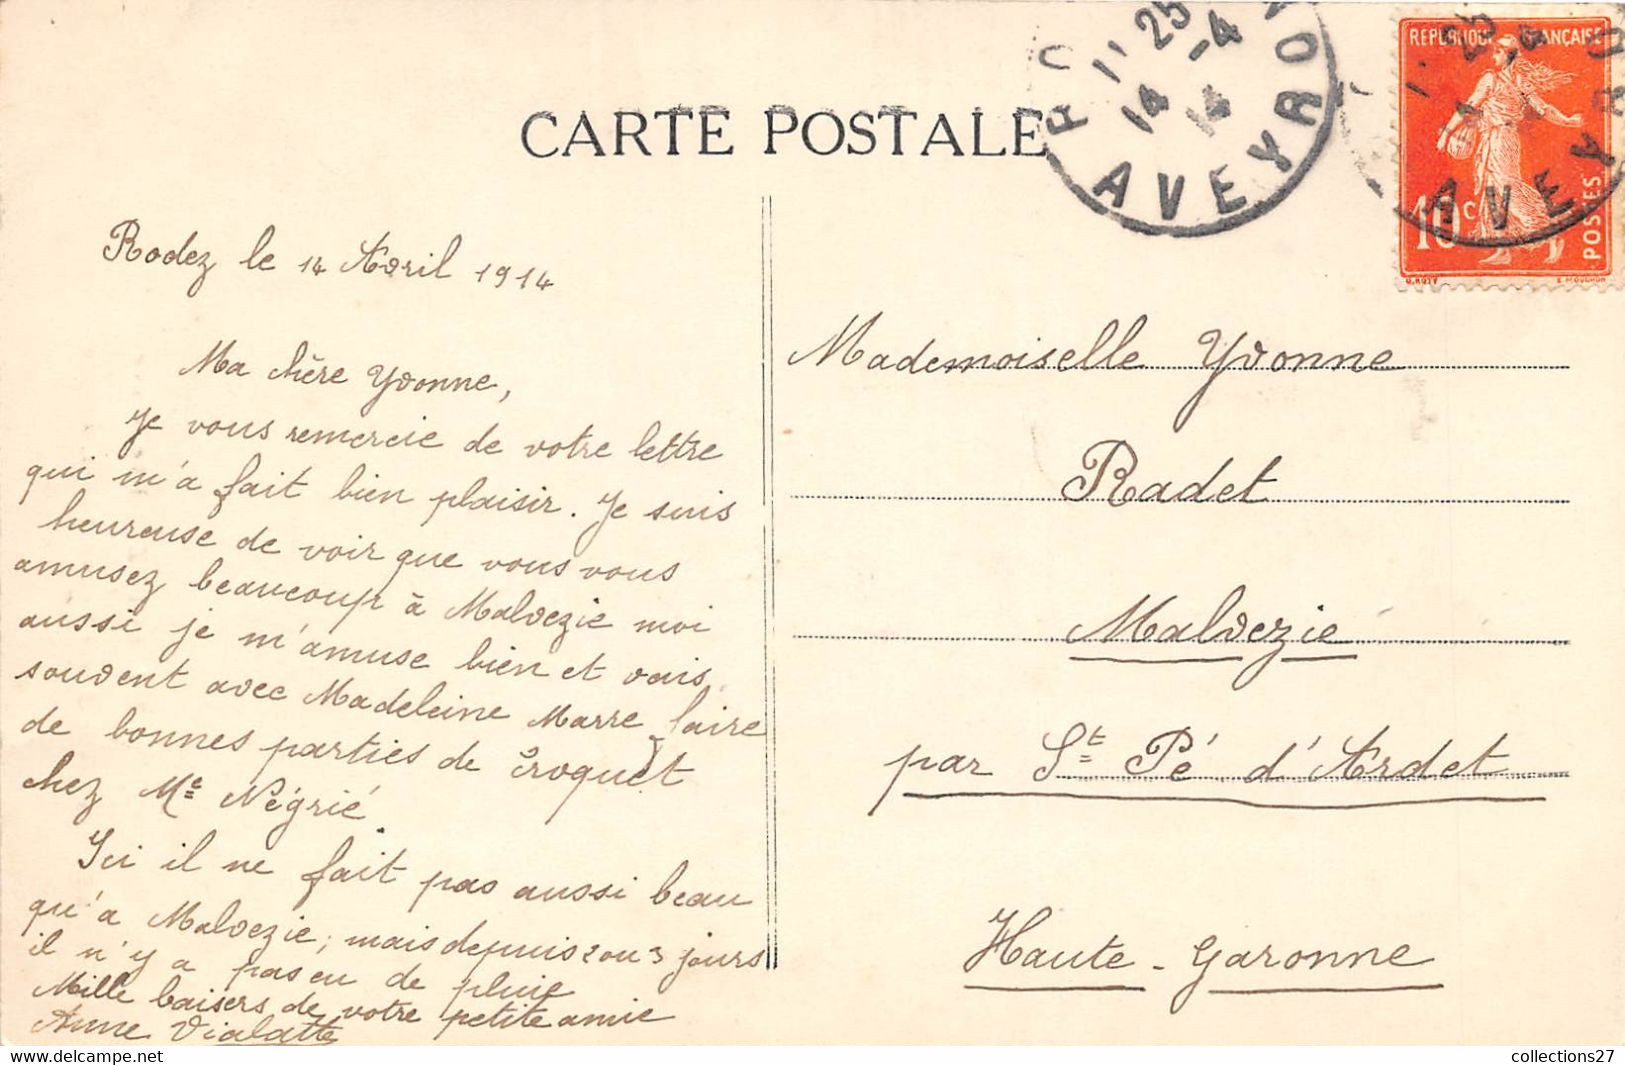 CARTE POSTALE
11 25
14 -4
14
AVEYRON
RÉPUBLIQUE FRANÇAISE
10 c
POSTES
O. ROTY
E. MOUCHON
Rodez le 14 Avril 1914
Ma chère Yvonne,
Je vous remercie de votre lettre
qui m'a fait bien plaisir. Je suis
heureuse de voir que vous vous
amusez beaucoup à Malvezie moi
aussi je m'amuse bien et vais
souvent avec Madeleine Marre faire
de bonnes parties de croquet
chez Me Négrié
Ici il ne fait pas aussi beau
qu'a Malvezie; mais depuis 2 ou 3 jours
il n'y a pas eu de pluie
Mille baisers de votre petite amie
Anne Vialatte
Mademoiselle Yvonne
Radet
Malvezie
par St Pé d'Ardet
Haute-Garonne
collections27